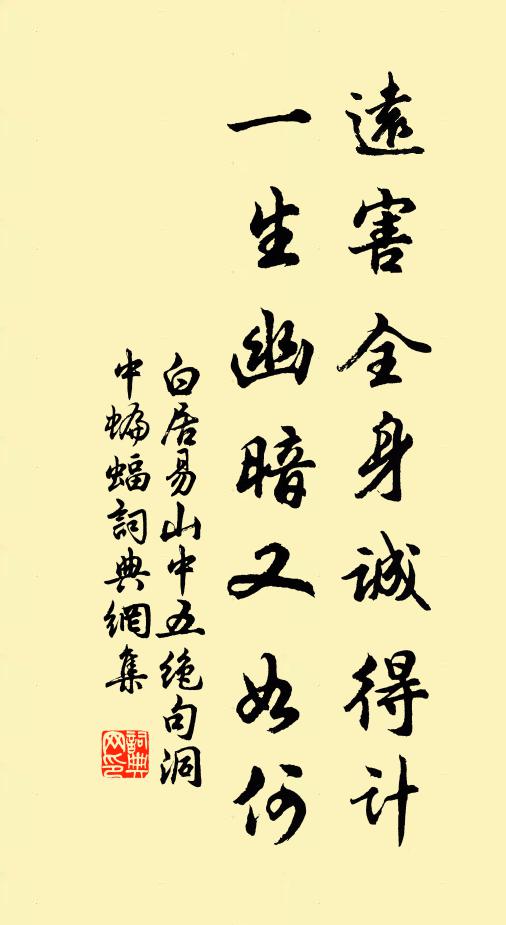 遠害全身誠得計
一生幽暗又如何
白居易山中五絶句洞
中蝙蝠詞典網集
詞典
网印